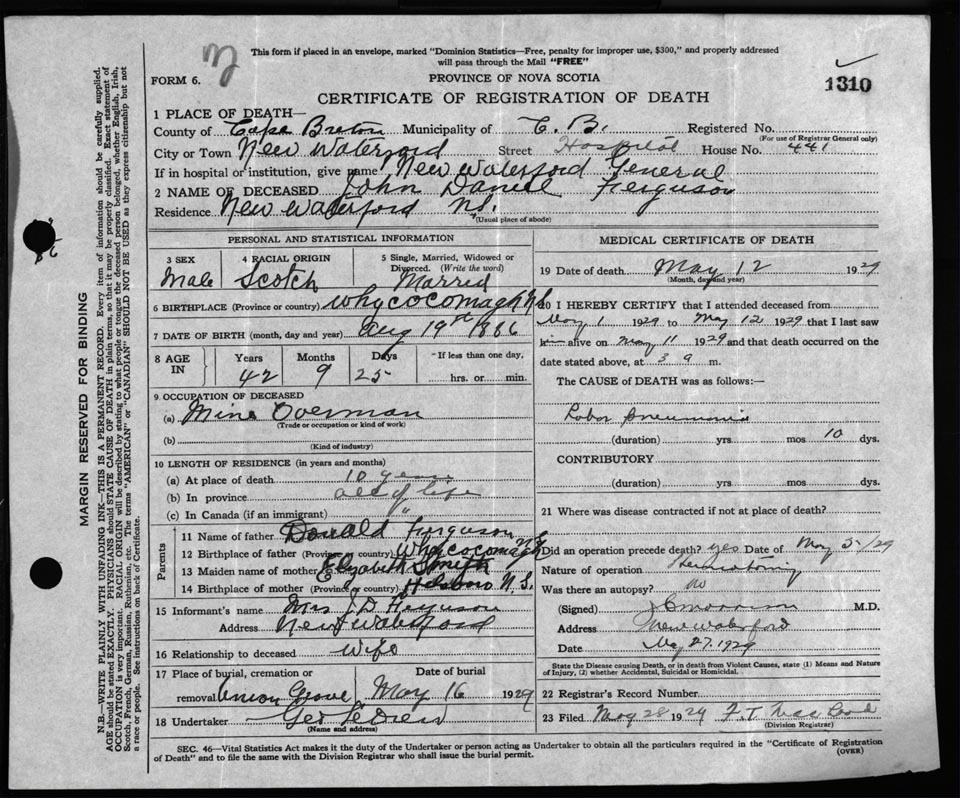 This form if placed in an envelope, marked "Dominion Statistics—Free, penalty for improper use, $300," and properly addressed
will pass through the Mail "FREE"
FORM 6.
PROVINCE OF NOVA SCOTIA
1310
CERTIFICATE OF REGISTRATION OF DEATH
1 PLACE OF DEATH—
County of Cape Breton Municipality of C. B. Registered No.
(For use of Registrar General only)
City or Town New Waterford Street Hospital House No. 441
If in hospital or institution, give name New Waterford General
2 NAME OF DECEASED John Daniel Ferguson
Residence New Waterford N.S.
(Usual place of abode)
PERSONAL AND STATISTICAL INFORMATION
3 SEX Male
4 RACIAL ORIGIN Scotch
5 Single, Married, Widowed or Divorced. (Write the word) Married
6 BIRTHPLACE (Province or country) Whycocomagh N.S.
7 DATE OF BIRTH (month, day and year) Aug 19st 1886
8 AGE IN Years 42 Months 9 Days 25 If less than one day, hrs. or min.
9 OCCUPATION OF DECEASED
(a) Mine Overman
(Trade or occupation or kind of work)
(b)
(Kind of industry)
10 LENGTH OF RESIDENCE (in years and months)
(a) At place of death 10 years
(b) In province all of life
(c) In Canada (if an immigrant) "
Parents
11 Name of father Donald Ferguson
12 Birthplace of father (Province or country) Whycocomagh N.S.
13 Maiden name of mother Elizabeth Smyth
14 Birthplace of mother (Province or country) N.S.
15 Informant's name Mrs J. D. Ferguson
Address New Waterford
16 Relationship to deceased Wife
17 Place of burial, cremation or removal Union Grove Date of burial May 16 1929
18 Undertaker Geo
(Name and address)
MEDICAL CERTIFICATE OF DEATH
19 Date of death May 12 1929
(Month, day and year)
20 I HEREBY CERTIFY that I attended deceased from
May 1 1929 to May 12 1929 that I last saw
him alive on May 11 1929 and that death occurred on the
date stated above, at 3 9 m.
The CAUSE of DEATH was as follows:—
Lobar Pneumonia
(duration) yrs mos 10 dys.
CONTRIBUTORY
(duration) yrs mos dys.
21 Where was disease contracted if not at place of death?
Did an operation precede death? yes Date of May 5/29
Nature of operation
Was there an autopsy? no
(Signed) J C Morrison M.D.
Address New Waterford
Date May 27 1929
State the Disease causing Death, or in death from Violent Causes, state (1) Means and Nature
of Injury, (2) whether Accidental, Suicidal or Homicidal.
22 Registrar's Record Number
23 Filed May 28 1929 F. T.
(Division Registrar)
SEC. 46—Vital Statistics Act makes it the duty of the Undertaker or person acting as Undertaker to obtain all the particulars required in the "Certificate of Registration
of Death" and to file the same with the Division Registrar who shall issue the burial permit.
(OVER)
MARGIN RESERVED FOR BINDING
N.B.—WRITE PLAINLY WITH UNFADING INK—THIS IS A PERMANENT RECORD. Every item of information should be carefully supplied.
AGE should be stated EXACTLY. PHYSICIANS should STATE CAUSE OF DEATH in plain terms, so that it may be properly classified. Exact statement of
OCCUPATION is very important. RACIAL ORIGIN will be described by stating to what people or tongue the deceased person belonged, whether English, Irish,
Scotch, French, German, Russian, Ruthenian, etc. The terms "AMERICAN" or "CANADIAN" SHOULD NOT BE USED as they express citizenship but not
a race or people. See instructions on back of Certificate.